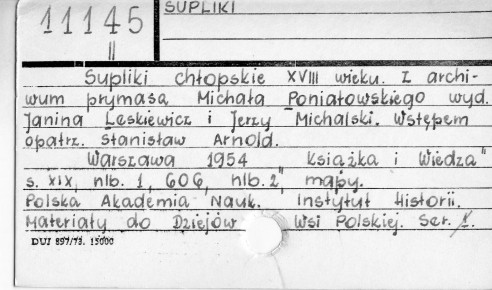 SUPLIKI
11145
II
Supliki chłopskie XVIII wieku. Z archi-
wum prymasa Michała Poniatowskiego wyd.
Janina Leskiewicz i Jerzy Michalski. Wstępem
opatrz. Stanisław Arnold.
Warszawa 1954 „Książka i Wiedza"
s. XIX, nlb. 1, 606, nlb. 2, mapy.
Polska Akademia Nauk. Instytut Historii.
Materiały do Dziejów Wsi Polskiej. Ser. 1.
DUJ 897/73. 15000